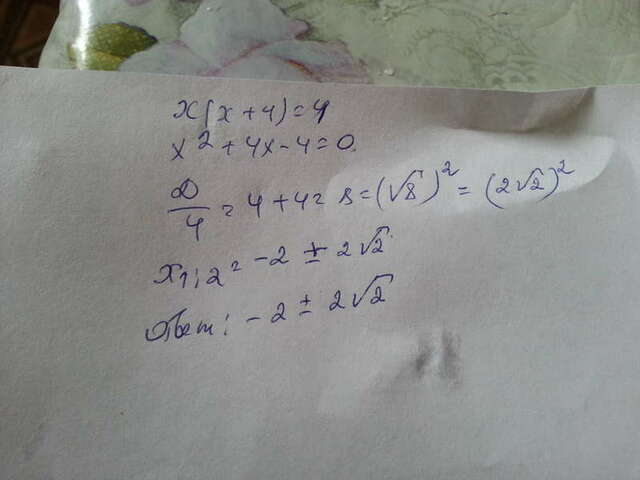 x(x+4)=4
x²+4x-4=0.
D/4 = 4+4= 8=(√8)²=(2√2)²
x1;2= -2 ± 2√2.
Ответ: -2 ± 2√2